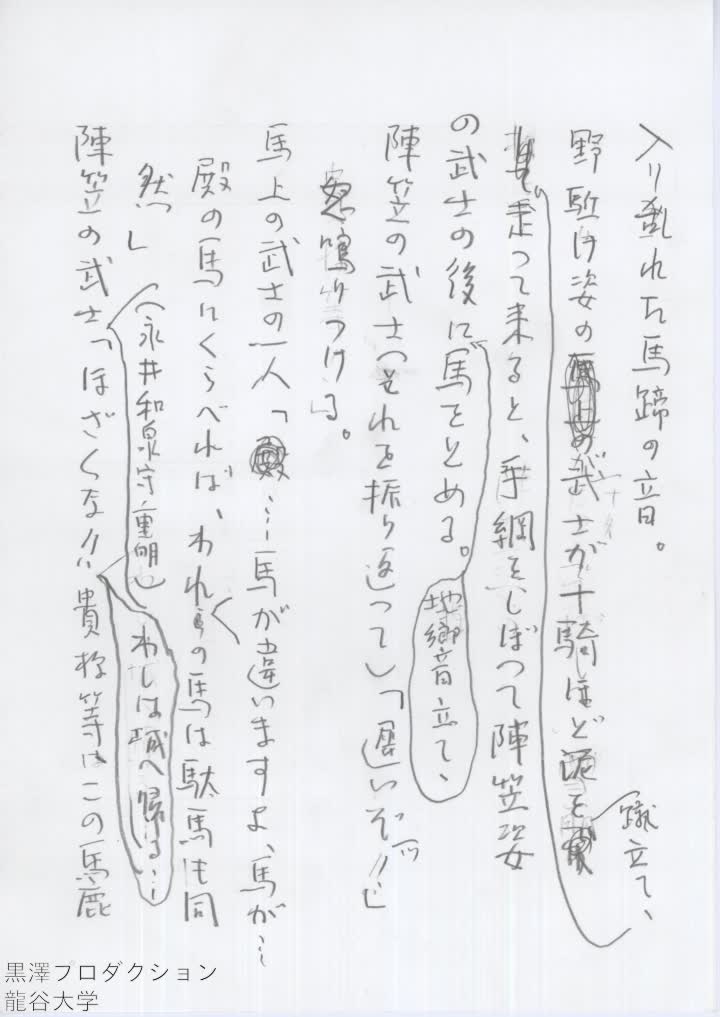 入り乱れた馬蹄の音。
野駈け姿の武士が十騎ほど泥を蹴立て、
走って来ると、手綱をしぼって陣笠姿
の武士の後に馬をとめる。
地響音立て、
陣笠の武士(それを振り返って)「遅いぞ!!」
怒鳴りつける。
馬上の武士の一人「…馬が違いますよ、馬が…
殿の馬にくらべれば、われらの馬は駄馬も同
然」
(永井和泉守重明)わしは城へ帰る…
陣笠の武士「ほざくな!!貴様等はこの馬鹿
黒澤プロダクション
龍谷大学